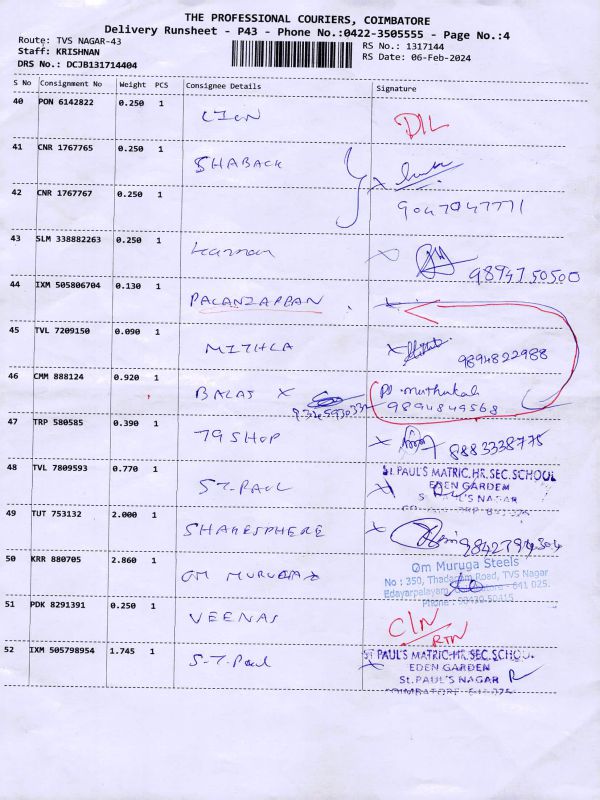 THE PROFESSIONAL COURIERS, COIMBATORE
Delivery Runsheet - P43 - Phone No.:0422-3505555 - Page No.:4
Route: TVS NAGAR-43
RS No.: 1317144
Staff: KRISHNAN
RS Date: 06-Feb-2024
DRS No.: DCJB131714404
S No Consignment No Weight PCS Consignee Details Signature
40 PON 6142822 0.250 1 LION DIL
41 CNR 1767765 0.250 1 SHABACK
42 CNR 1767767 0.250 1 9047047771
43 SLM 338882263 0.250 1 Kannan 9894750500
44 IXM 505806704 0.130 1 PALANIAPPAN
45 TVL 7209150 0.090 1 MITHLA 9894822988
46 CMM 888124 0.920 1 BALAJ X muthukali
9894849568
47 TRP 580585 0.390 1 79 SHOP 8883338775
48 TVL 7809593 0.770 1 ST. PAUL ST. PAUL'S MATRIC.HR.SEC.SCHOOL
EDEN GARDEN
S PAUL'S NAGAR
49 TUT 753132 2.000 1 SHAKESPHERE
50 KRR 880705 2.860 1 OM MURUGA Om Muruga Steels
No : 350, Thadagam Road, TVS Nagar
Edayarpalayam, Coimbatore - 641 025.
51 PDK 8291391 0.250 1 VEENAS C/N
RTN
52 IXM 505798954 1.745 1 S.T. Paul ST PAUL'S MATRIC.HR.SEC.SCHOOL
EDEN GARDEN
St.PAUL'S NAGAR
COIMBATORE 641-025